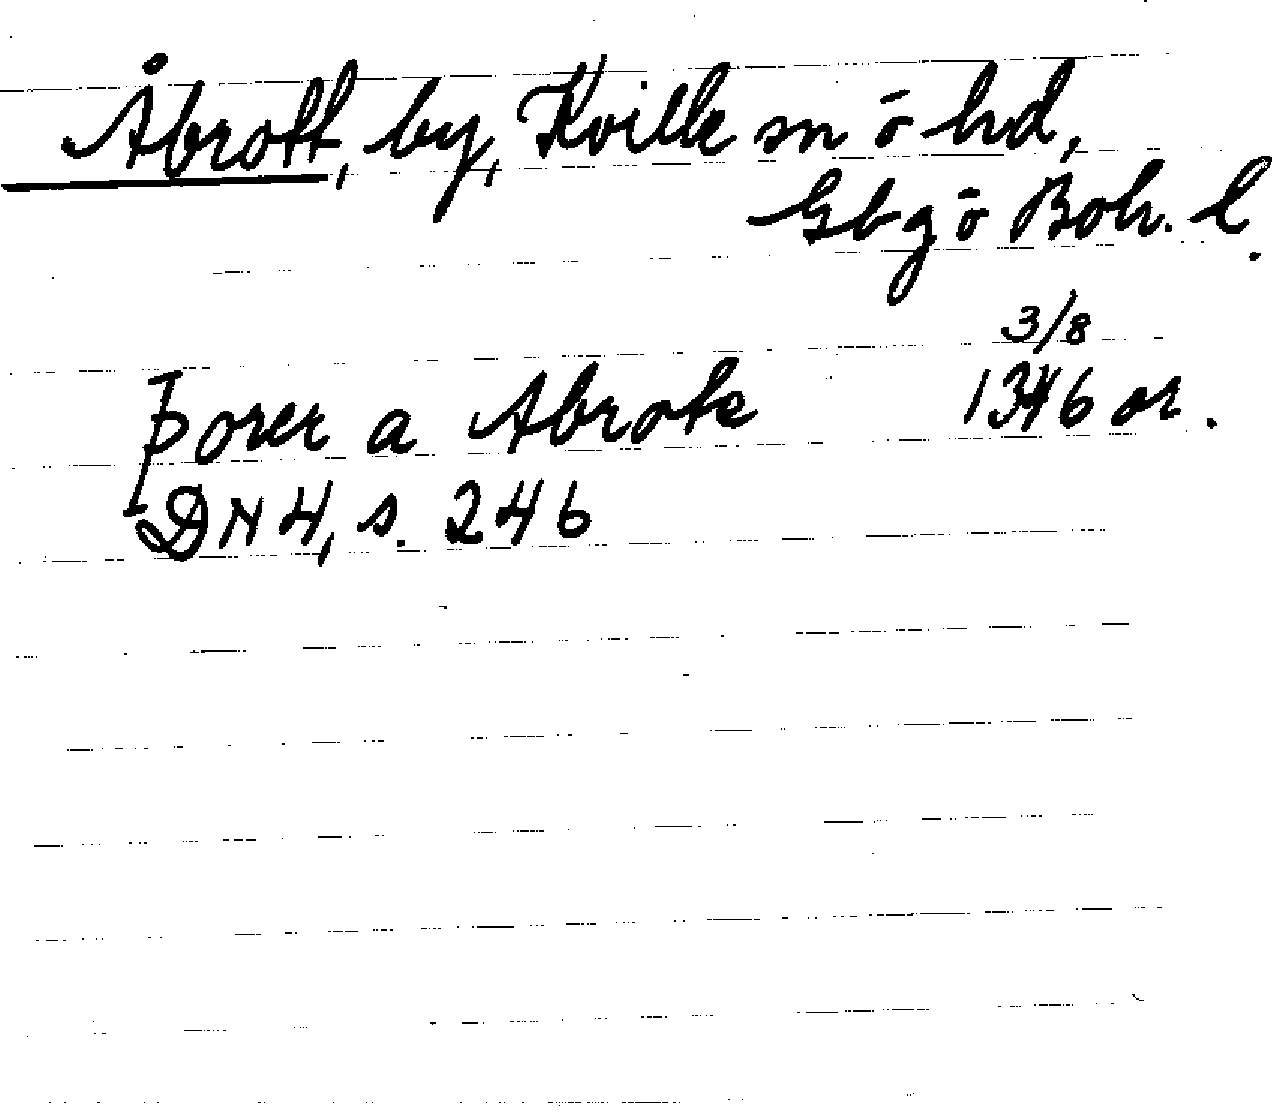 Åbrott, by, Kville sn o hd,
Gbg o Boh. l.
3/8
Þorer a Abrote 1346 or.
DN 4, s. 246